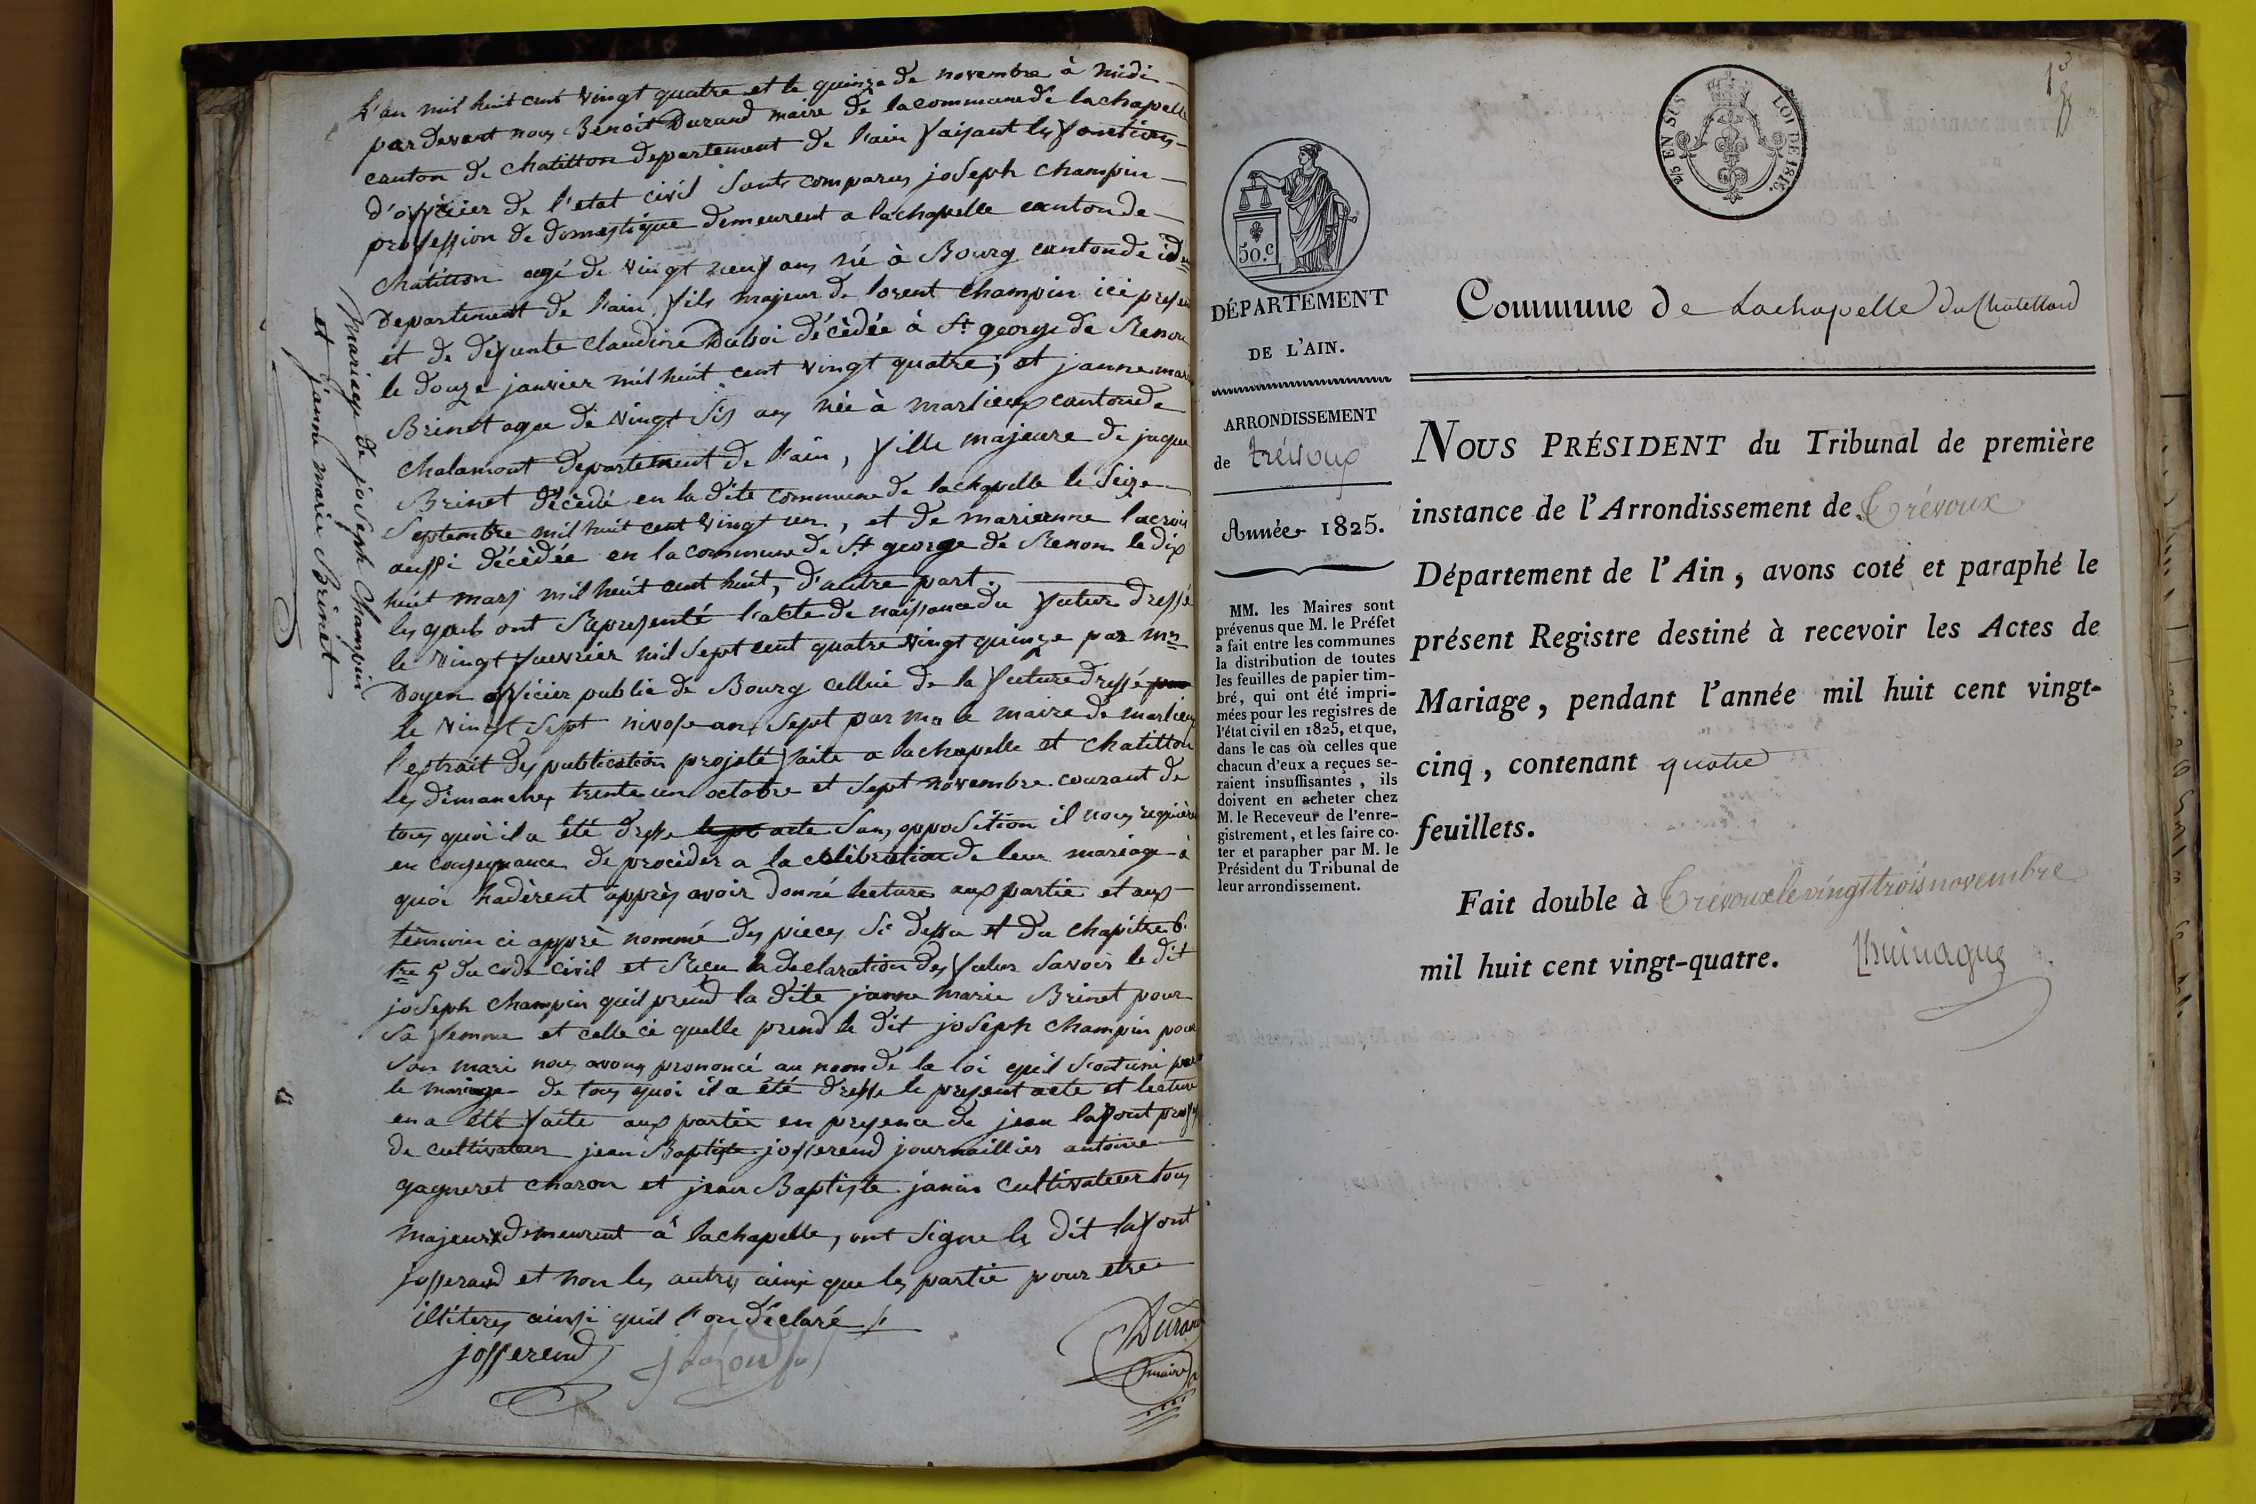 L'an mil huit cent vingt quatre et le quinze de novembre à midi
par devant nous Benoit Durand maire de la commune de lachapelle
canton de chatillon departement de l'ain faisant les fonctions
d'officier de l'etat civil sont comparus joseph champin
profession de domestique demeurent a lachapelle canton de
chatillon agé de vingt neuf ans né à Bourg canton de idem
departement de l'ain, fils majeur de lorent champin ici present
et de defunte claudine Duboi décèdée à St george de Renon
le douze janvier mil huit cent vingt quatre; et janne marie
Brinet agee de vingt six ans née à marlieux canton de
chalamont departement de l'ain, fille majeure de jaque
Brinet décèdé en la dite commune de lachapelle le seize
septembre mil huit cent vingt un, et de marianne lacroix
aussi décèdée en la commune de St george de Renon le dix
huit mars mil huit cent huit, d'autre part.
les quels ont representé l'acte de naissance du futur dressé
le vingt fuevrier mil sept cent quatre vingt quinze par mr
Doyen officier public de Bourg cellui de la future dressé par
le vingt sept nivose an sept par mr le maire de marlieux
l'extrait des publication projeté faite a lachapelle et chatillon
les dimanches trente un octobre et sept novembre courant de
tous quoi il a été dresse acte sans opposition il nous requièrent
en consequance de procèder a la celèbration de leur mariage à
quoi hadèrent apprès avoir donné lecture aux partie et aux
temoin ci apprè nommé des pieces si dessu et du chapitre 6
tre 5 du code civil et reçu la declaration des futur savoir le dit
joseph champin quil prend la dite janne marie Brinet pour
sa femme et celle ci quelle prend le dit joseph champin pour
son mari nous avons prononcé au nom de la loi quil sont uni par
le mariage de tous quoi il a été dresse le present acte et lecture
en a été faite aux partie en presence de jean lafont profes
de cultivateur jean Baptiste josserend journaillier antoine
gagneret charon et jean Baptiste janin cultivateur tous
majeur demeurent à lachapelle, ont signe les dit lafont
josserand et non les autres ainsi que les partie pour etre
illiteres ainsi quil l'on déclaré
josserend
Durand
maire
Mariage de joseph Champin
et janne marie Brinet
50.C
DÉPARTEMENT
DE L'AIN.
ARRONDISSEMENT
de trévoux
Année 1825.
MM. les Maires sont
prévenus que M. le Préfet
a fait entre les communes
la distribution de toutes
les feuilles de papier tim-
bré, qui ont été impri-
mées pour les registres de
l'état civil en 1825, et que,
dans le cas où celles que
chacun d'eux a reçues se-
raient insuffisantes, ils
doivent en acheter chez
M. le Receveur de l'enre-
gistrement, et les faire co-
ter et parapher par M. le
Président du Tribunal de
leur arrondissement.
EN SUS LOI DE 1816.
Commune de Lachapelle du Chatellard
NOUS PRÉSIDENT du Tribunal de première
instance de l'Arrondissement de Trévoux
Département de l'Ain, avons coté et paraphé le
présent Registre destiné à recevoir les Actes de
Mariage, pendant l'année mil huit cent vingt-
cinq, contenant quatre
feuillets.
Fait double à Trévoux le vingt trois novembre
mil huit cent vingt-quatre.